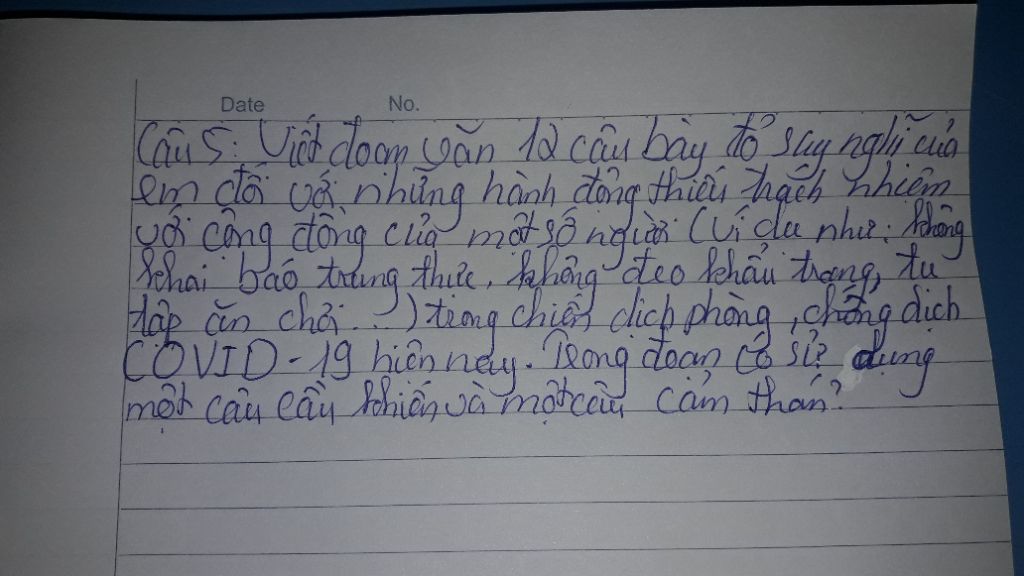 Date No.
Câu 5: Viết đoạn văn 12 câu bày tỏ suy nghĩ của
em đối với những hành động thiếu trách nhiệm
với cộng đồng của một số người (ví dụ như: không
khai báo trung thực, không đeo khẩu trang, tụ
tập ăn chơi...) trong chiến dịch phòng, chống dịch
COVID-19 hiện nay. Trong đoạn có sử dụng
một câu cầu khiến và một câu cảm thán?